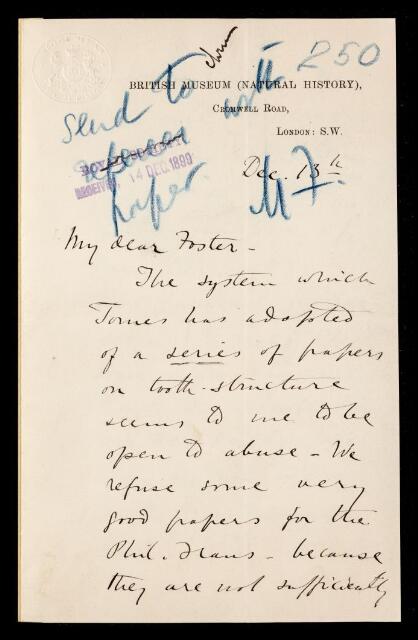 250
Send to
with
paper.
MF.
BRITISH MUSEUM (NATURAL HISTORY),
CROMWELL ROAD,
LONDON: S.W.
ROYAL SOCIETY
RECEIVED 14 DEC. 1899
Dec. 13th
My dear Foster –
The system which
Tomes has adopted
of a series of papers
on tooth-structure
seems to me to be
open to abuse – We
refuse some very
good papers for the
Phil. Trans – because
they are not sufficiently